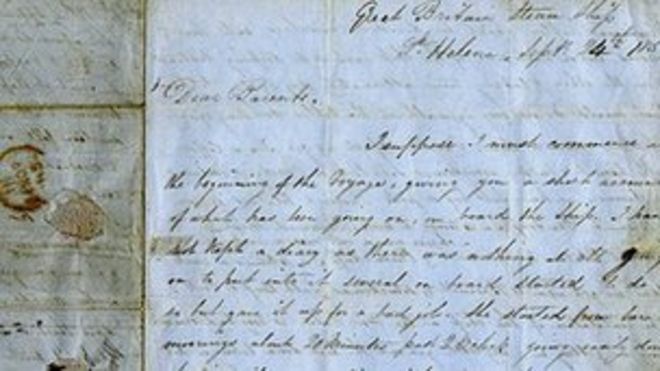 Great Britain Steam Ship
St Helena, Sept 24th 185
Dear Parents,
I suppose I must commence
the beginning of the Voyage, giving you a short accoun
of what has been going on, on board the Ship. I hav
not kept a diary as there was nothing at all going
on to put into it several on board started to do
so but gave it up for a bad job. We started from
mornings about 20 Minutes past 2 O'clock going easily down